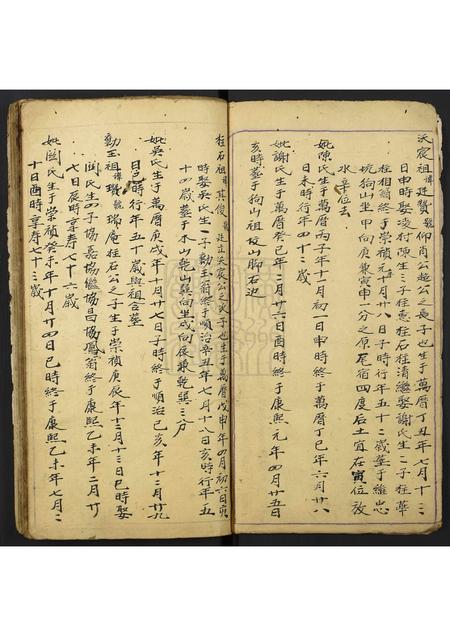 沃宸祖諱廷贊號仰肖公起公之長子也生于萬曆丁丑年七月十二
日申時娶凌村陳生三子柱憲柱石柱清繼娶謝氏生二子柱華
柱相翁終于崇禎元十月廿八日子時行年五十二歲塟于維忠
坑狗山坐甲向庚兼寅申一分之原尾宿四度后土宜在寅位放
水辛位去
妣陳氏生于萬曆丙子年十一月初一日申時終于萬曆丁巳年六月廿八
日未時行年四十二歲
妣謝氏生于萬曆癸巳年二月廿六日酉時終于康熙元年四月廿五日
亥時塟于狗山祖坟山脚右边
柱石祖諱其俊號廷沃宸公之次子也生于萬曆戊申年四月初六日寅
時娶吳氏生一子勸玉翁終于順治辛丑年七月十八日亥時行年五
十四歲塟于木山乾山巽向坐戌向辰兼乾巽三分
妣吳氏生于萬曆庚戌年十月廿七日子時終于順治己亥年十二月廿九
日巳時行年五十歲與祖合塟
勸玉祖諱瓚號瑞庵柱石公之子生于崇禎庚辰年十二月十三日巳時娶
闕氏生四子協嘉協繼協昌協鳳翁終于康熙乙未年二月廿
七日辰時享寿七十六歲
妣闕氏生于崇禎癸未年十月廿四日巳時終于康熙乙未年七月二
十日酉時享寿七十三歲